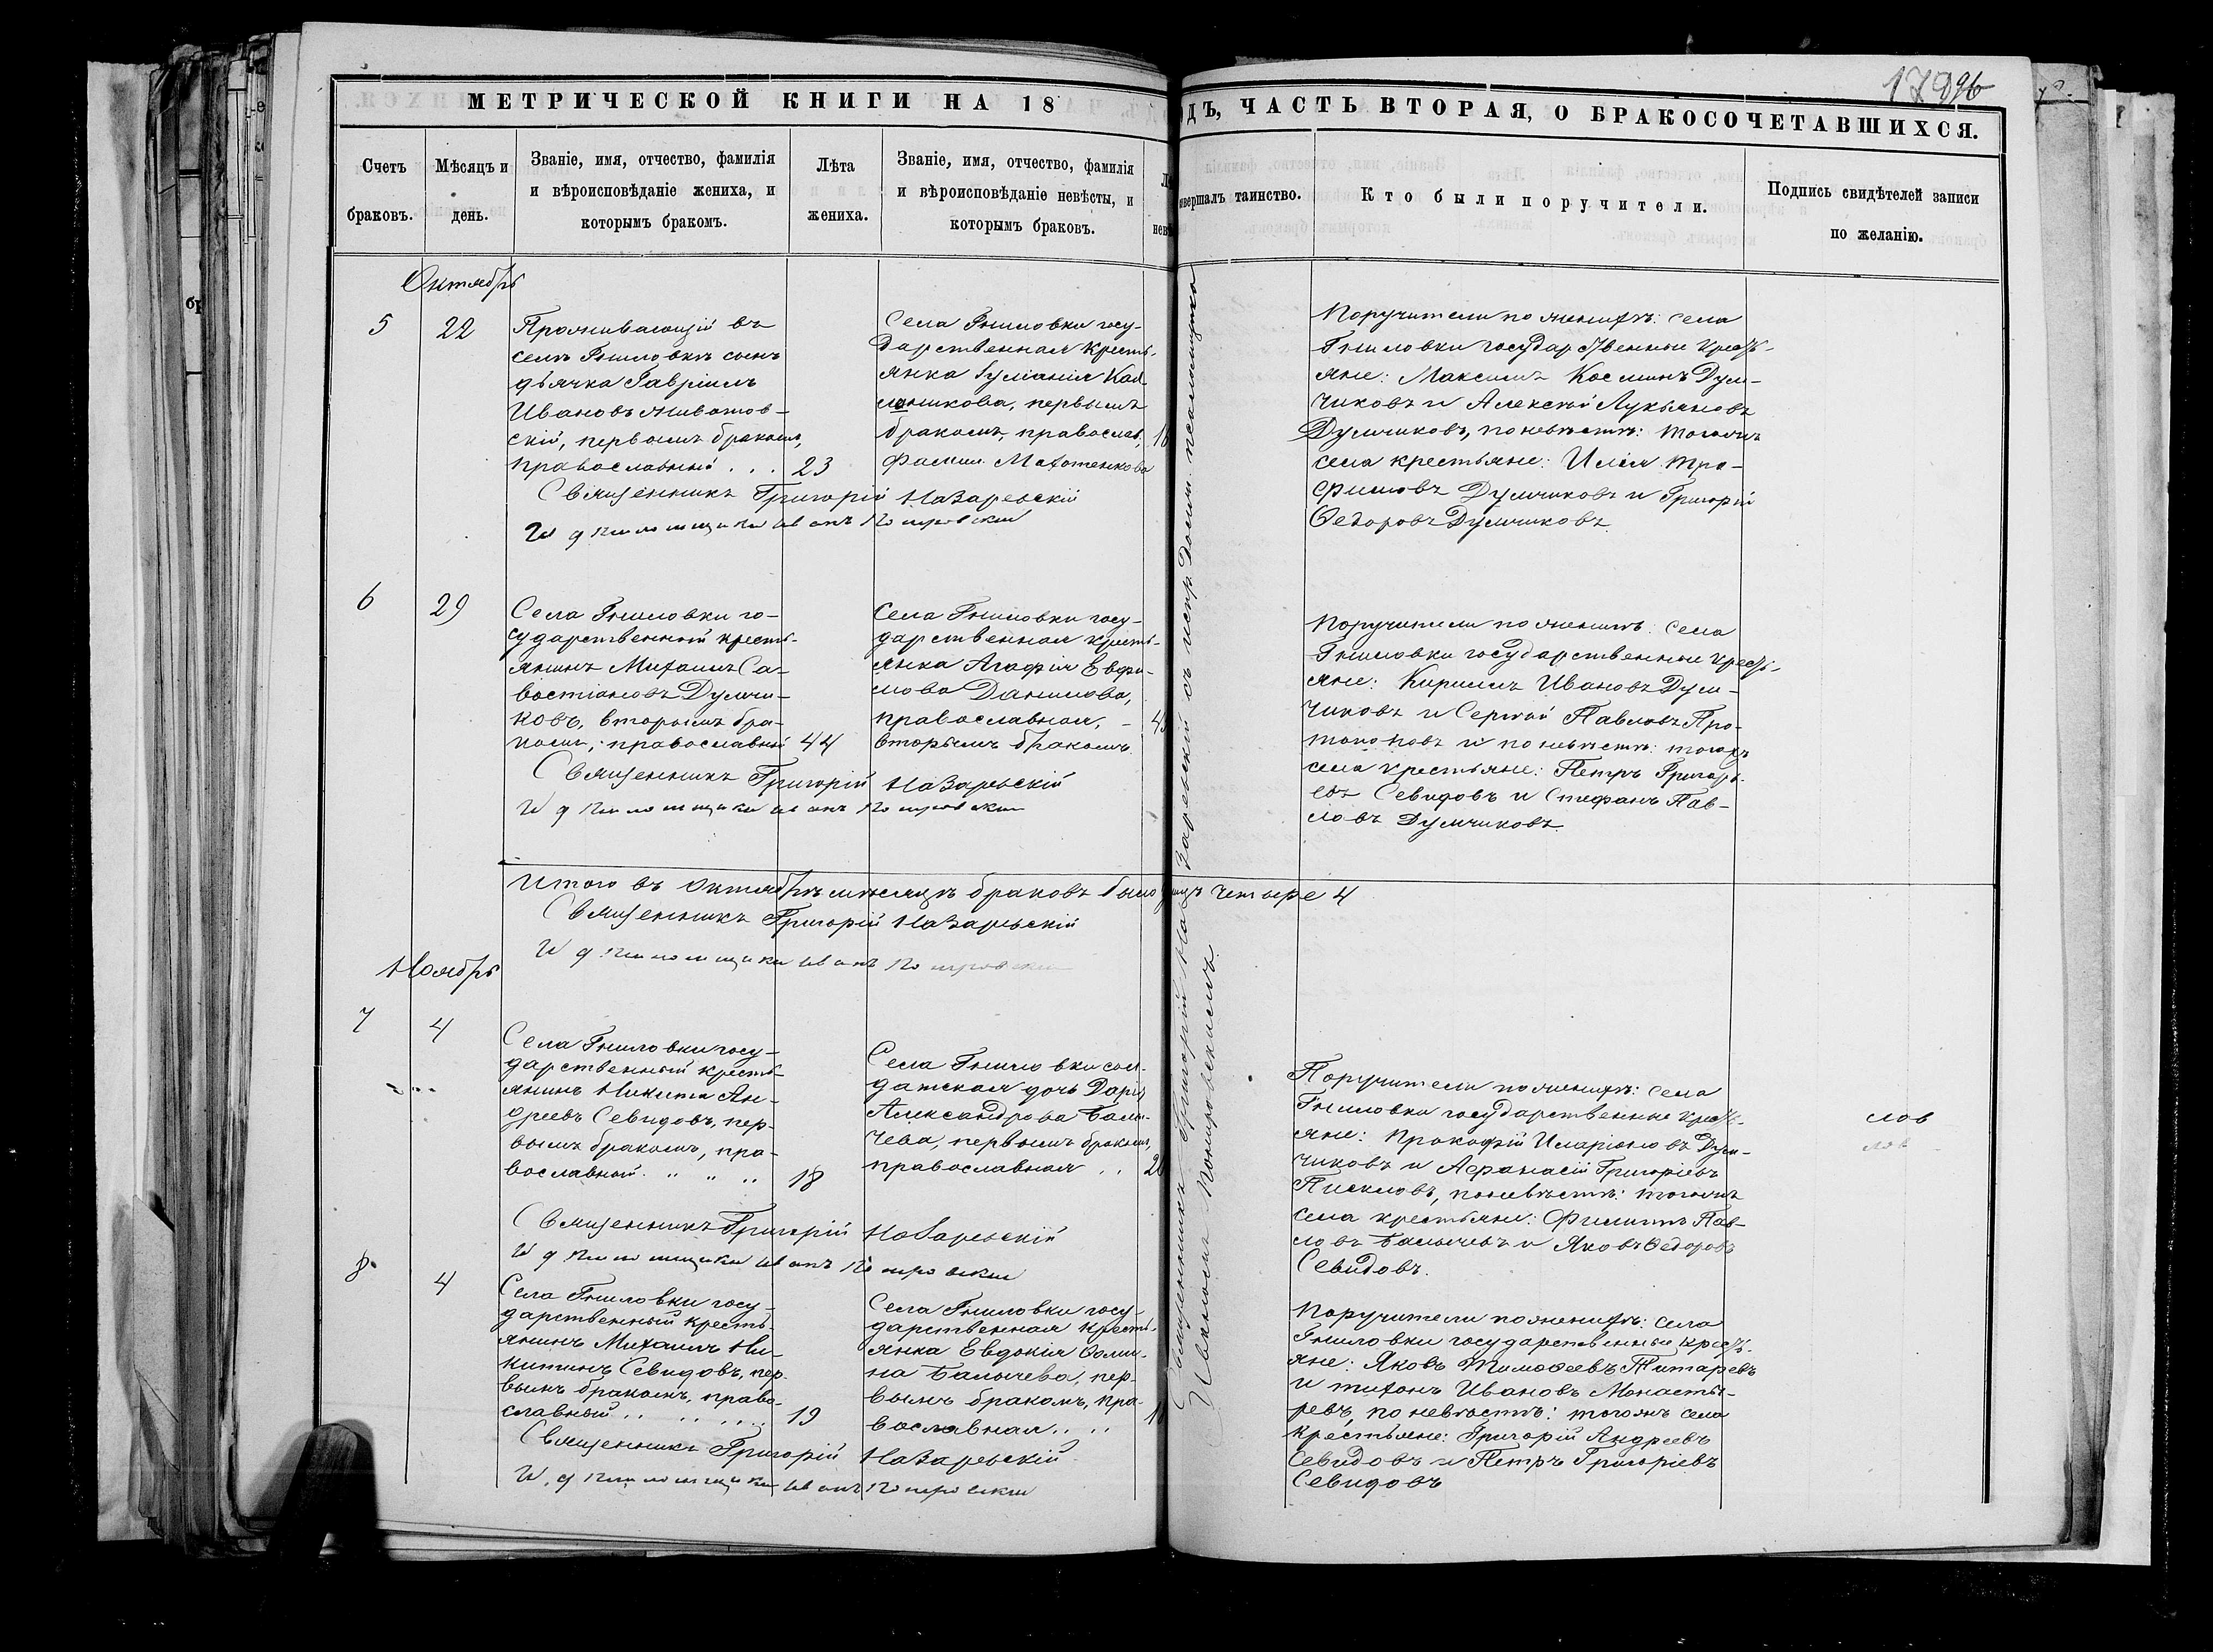 1796
МЕТРИЧЕСКОЙ КНИГИ НА 18
ОДЪ, ЧАСТЬ ВТОРАЯ, О БРАКОСОЧЕТАВШИХСЯ.
Счетъ браковъ.
Мѣсяцъ и день.
Званіе, имя, отчество, фамилія
и вѣроисповѣданіе жениха, и
которымъ бракомъ.
Лѣта жениха.
Званіе, имя, отчество, фамилія
и вѣроисповѣданіе невѣсты, и
которымъ браковъ.
вершалъ таинство.
Кто были поручители.
Подпись свидѣтелей записи
по желанію.
Октябрь
5
22
Проживающій въ
селѣ Гниловкѣ сынъ
дьячка Гавріилъ
Ивановъ Животов-
скій, первымъ бракомъ,
православный . . . 23
Села Гниловки госу-
дарственная кресть-
янка
первымъ
бракомъ, православ,
фамил. Махотенкова
Поручители по женихѣ: села
Гниловки государственные кресть-
яне: Максимъ Космины Дум-
чиковъ и Алексѣй Лукьяновъ
Думчиковъ, по невѣстѣ: тогожъ
села крестьяне: Илія Тро-
фимовъ Думчиковъ и Григорій
Ѳедоровъ Думчиковъ.
Священникъ Григорій Назаревскій
И д псаломщика Иванъ Покровскій
6
29
Села Гниловки го-
сударственный кресть-
янинъ Михаилъ Са-
востіановъ Думчи-
ковъ, вторымъ бра-
комъ, православный 44
Села Гниловки госу-
дарственная кресть-
янка Агафія Евфи-
мова Данилова,
православная, -
вторымъ бракомъ.
Поручители по женихѣ: села
Гниловки государственные кресть-
яне: Кириллъ Ивановъ Дум-
чиковъ и Сергѣй Павловъ Про-
топоповъ и по невѣстѣ: тогожъ
села крестьяне: Петръ Григорь-
евъ Севидовъ и Стефанъ Пав-
ловъ Думчиковъ.
Священникъ Григорій Назаревскій
И д псаломщика Иванъ Покровскій
Итого въ Октябрѣ мѣсяцѣ браковъ было четыре 4
Священникъ Григорій Назаревскій
И д псаломщика Иванъ Покровскій
Ноябрь
7
4
Села Гниловки госу-
дарственный кресть-
янинъ Никита Ан-
дреевъ Севидовъ, пер-
вымъ бракомъ, пра-
вославный . „ „ „ 18
Села Гниловки сол-
датская дочь Дарія
Александрова Балы-
чева, первымъ бракомъ,
православная . .
Поручители по женихѣ: села
Гниловки государственные кресть-
яне: Прокофій Иларіоновъ Дум-
чиковъ и Афанасій Григоріевъ
Писклов, по невѣстѣ: тогожъ
села крестьяне: Филиппъ Пав-
ловъ Балычевъ и Яковъ Ѳедоровъ
Севидовъ.
слов
Священникъ Григорій Назаревскій
И д псаломщика Иванъ Покровскій
8
4
Села Гниловки госу-
дарственный кресть-
янинъ Михаилъ Ни-
китинъ Севидовъ, пер-
вымъ бракомъ, право-
славный . . . . . . 19
Села Гниловки госу-
дарственная кресть-
янка Евдокія Ѳоми-
на Балычева, пер-
вымъ бракомъ, пра-
вославная . . . .
Поручители по женихѣ: села
Гниловки государственные кресть-
яне: Яковъ Тимоѳеевъ Титаревъ
и Тихонъ Ивановъ Монасты-
ревъ, по невѣстѣ: тогожъ села
крестьяне: Григорій Андреевъ
Севидовъ и Петръ Григоріевъ
Севидовъ
Священникъ Григорій Назаревскій
И. д псаломщика Иванъ Покровскій
Священникъ Григорій Назаревскій съ испр. должн. псаломщика
Иваномъ Покровскимъ.